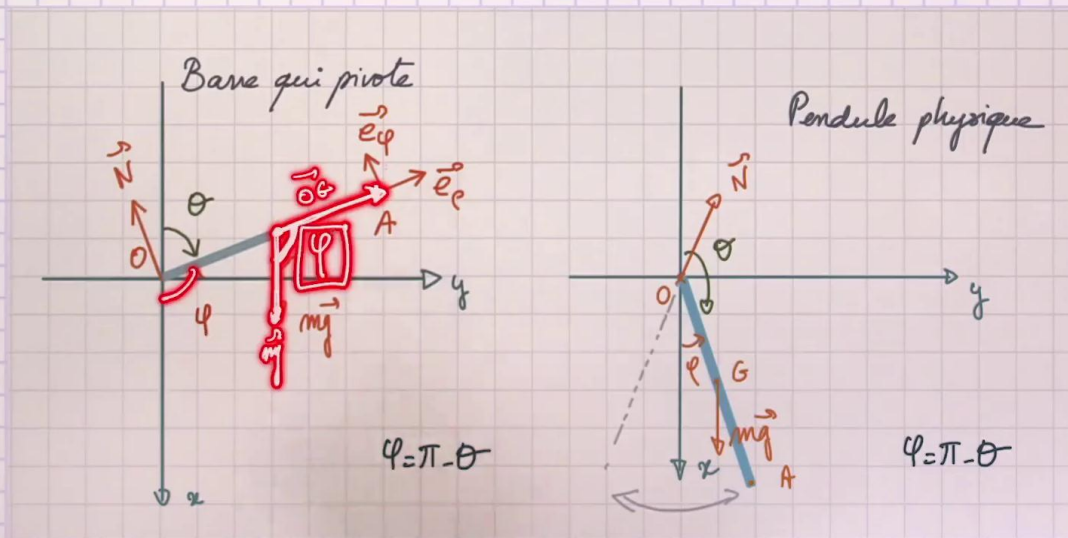 Barre qui pivote
e⃗φ
N⃗
θ
O⃗G
e⃗ρ
A
O
φ
φ
y
mg⃗
mg⃗
φ=π-θ
x
Pendule physique
N⃗
θ
O
y
φ
G
mg⃗
x
A
φ=π-θ